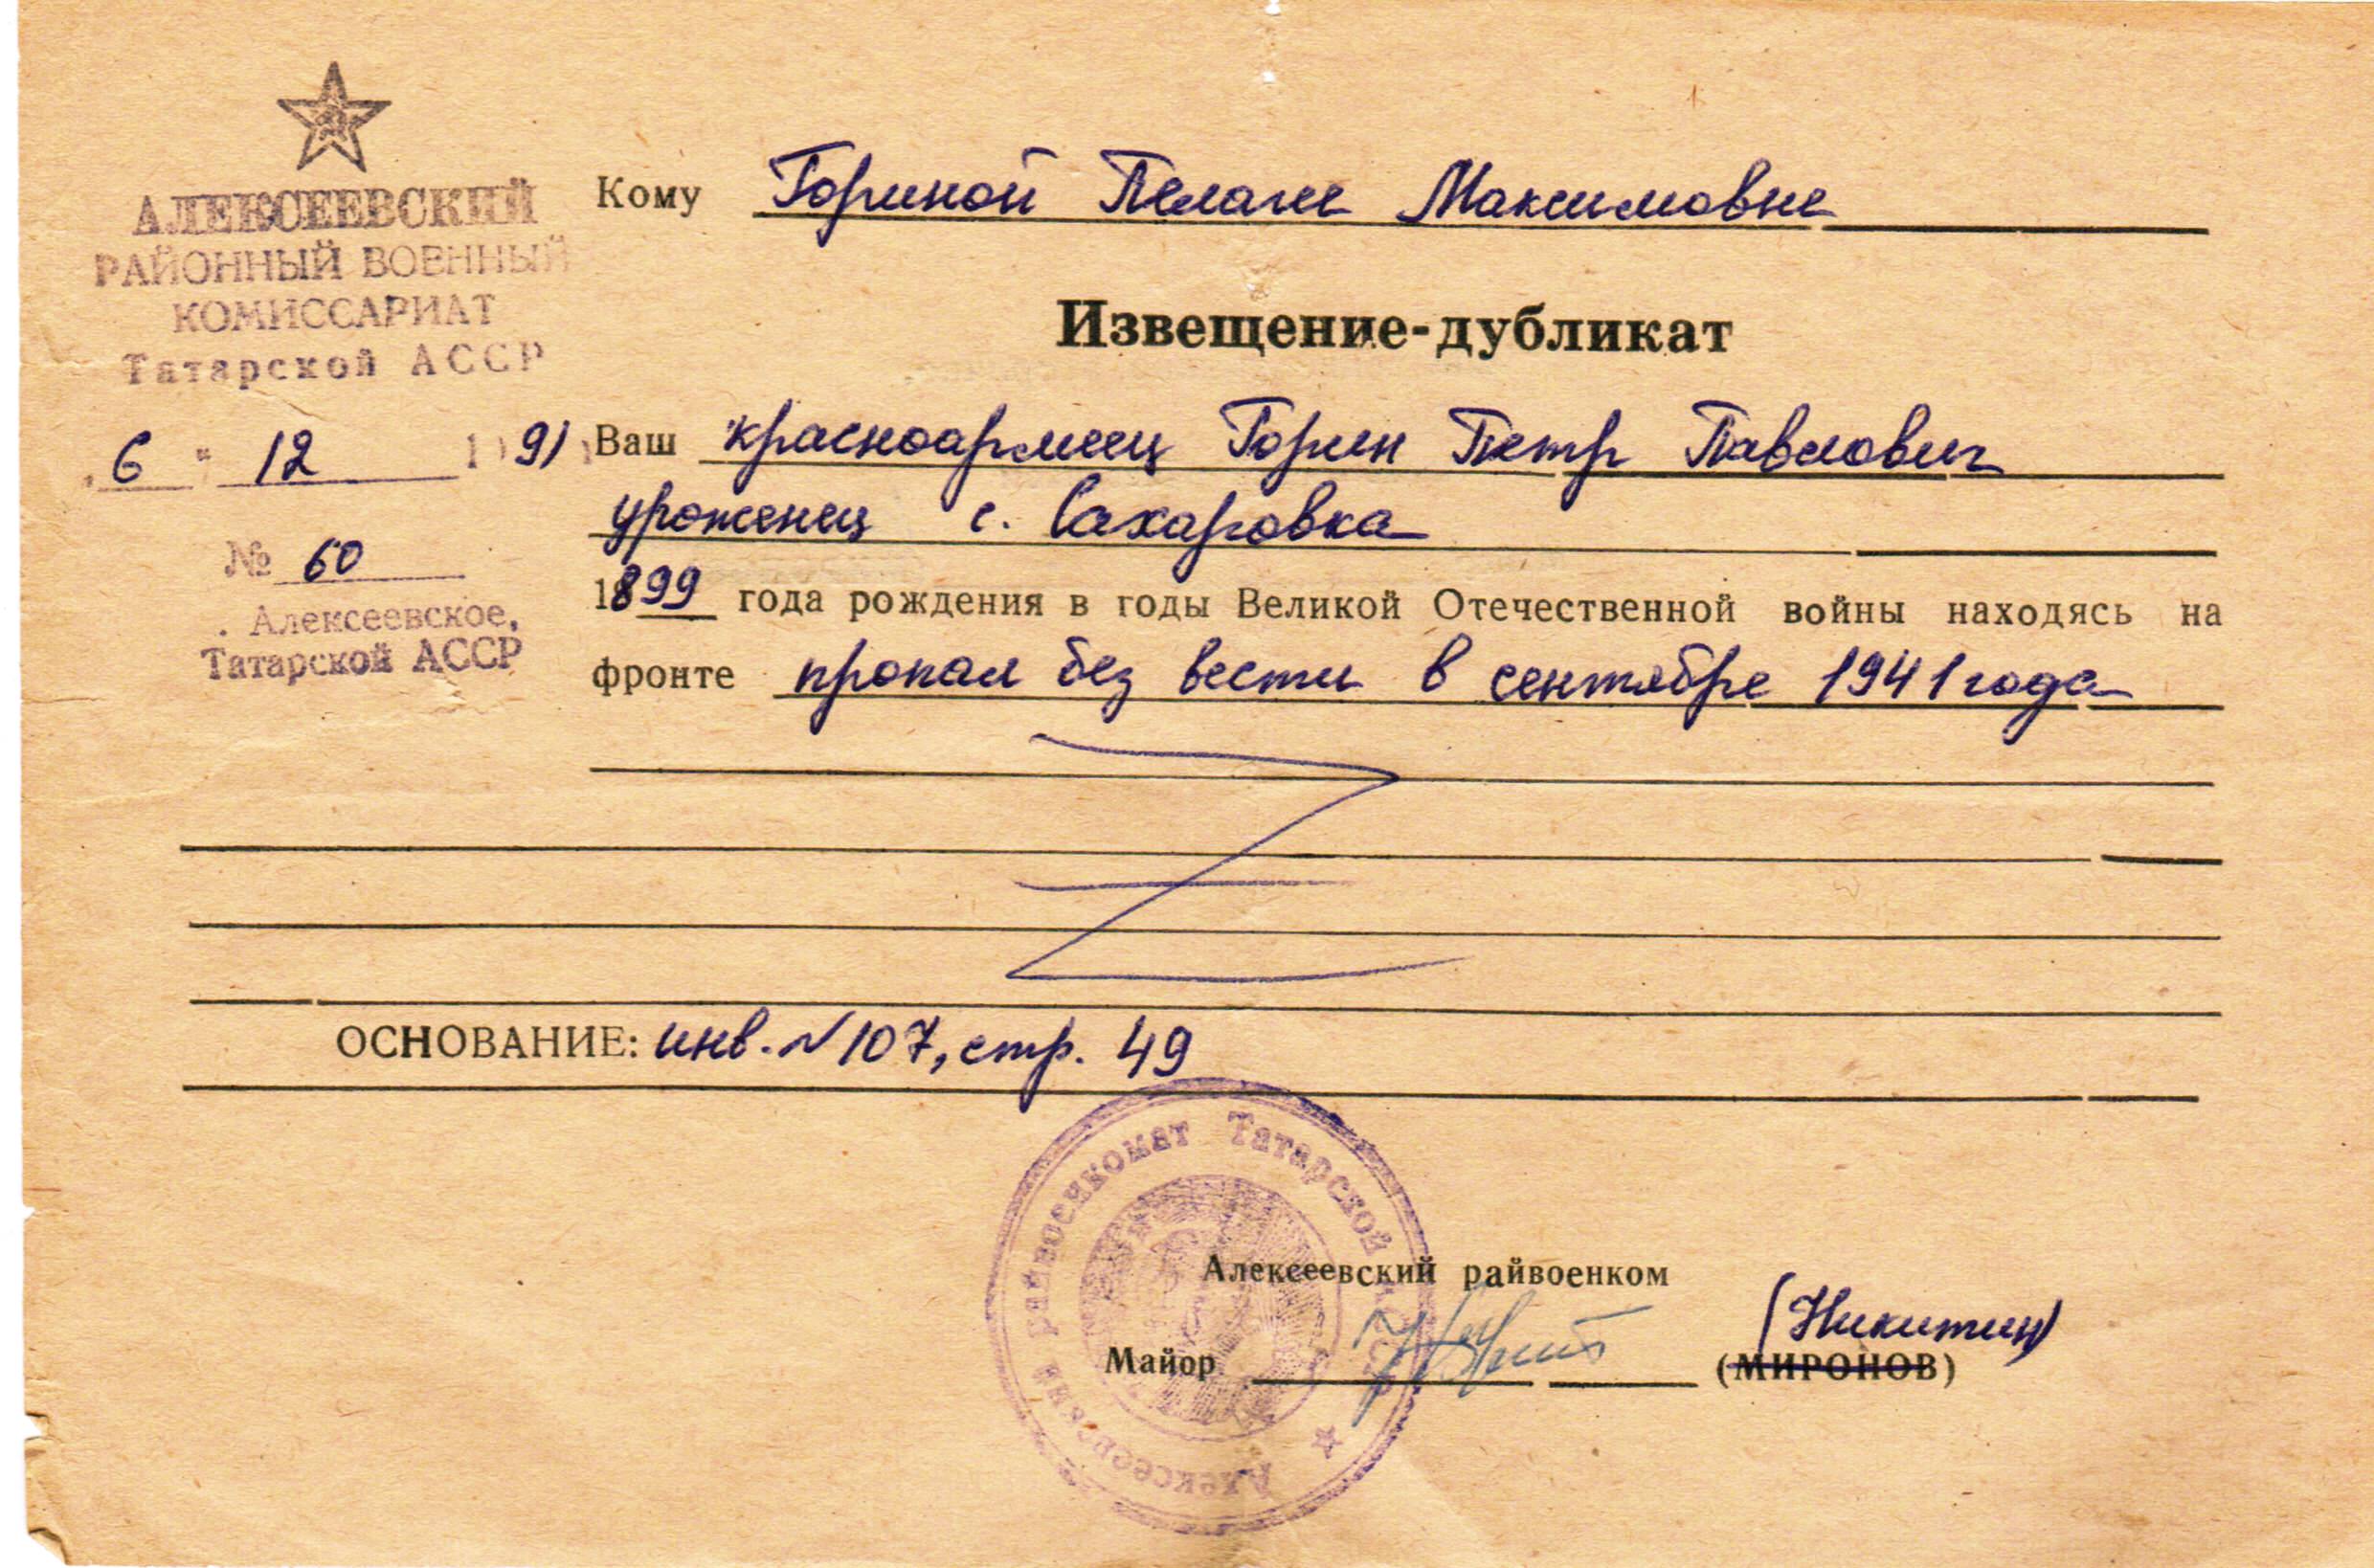 АЛЕКСЕЕВСКИЙ
РАЙОННЫЙ ВОЕННЫЙ
КОМИССАРИАТ
Татарской АССР
„ 6 " 12 1991
№ 60
. Алексеевское,
Татарской АССР
Кому Гориной Пелагее Максимовне
Извещение-дубликат
Ваш красноармеец Горин Петр Павлович
уроженец с. Сахаровка
1899 года рождения в годы Великой Отечественной войны находясь на
фронте пропал без вести в сентябре 1941 года
ОСНОВАНИЕ: инв. N 107, стр. 49
Алексеевский райвоенкомат Татарской АССР
Алексеевский райвоенком
(Никитин)
Майор (МИРОНОВ)